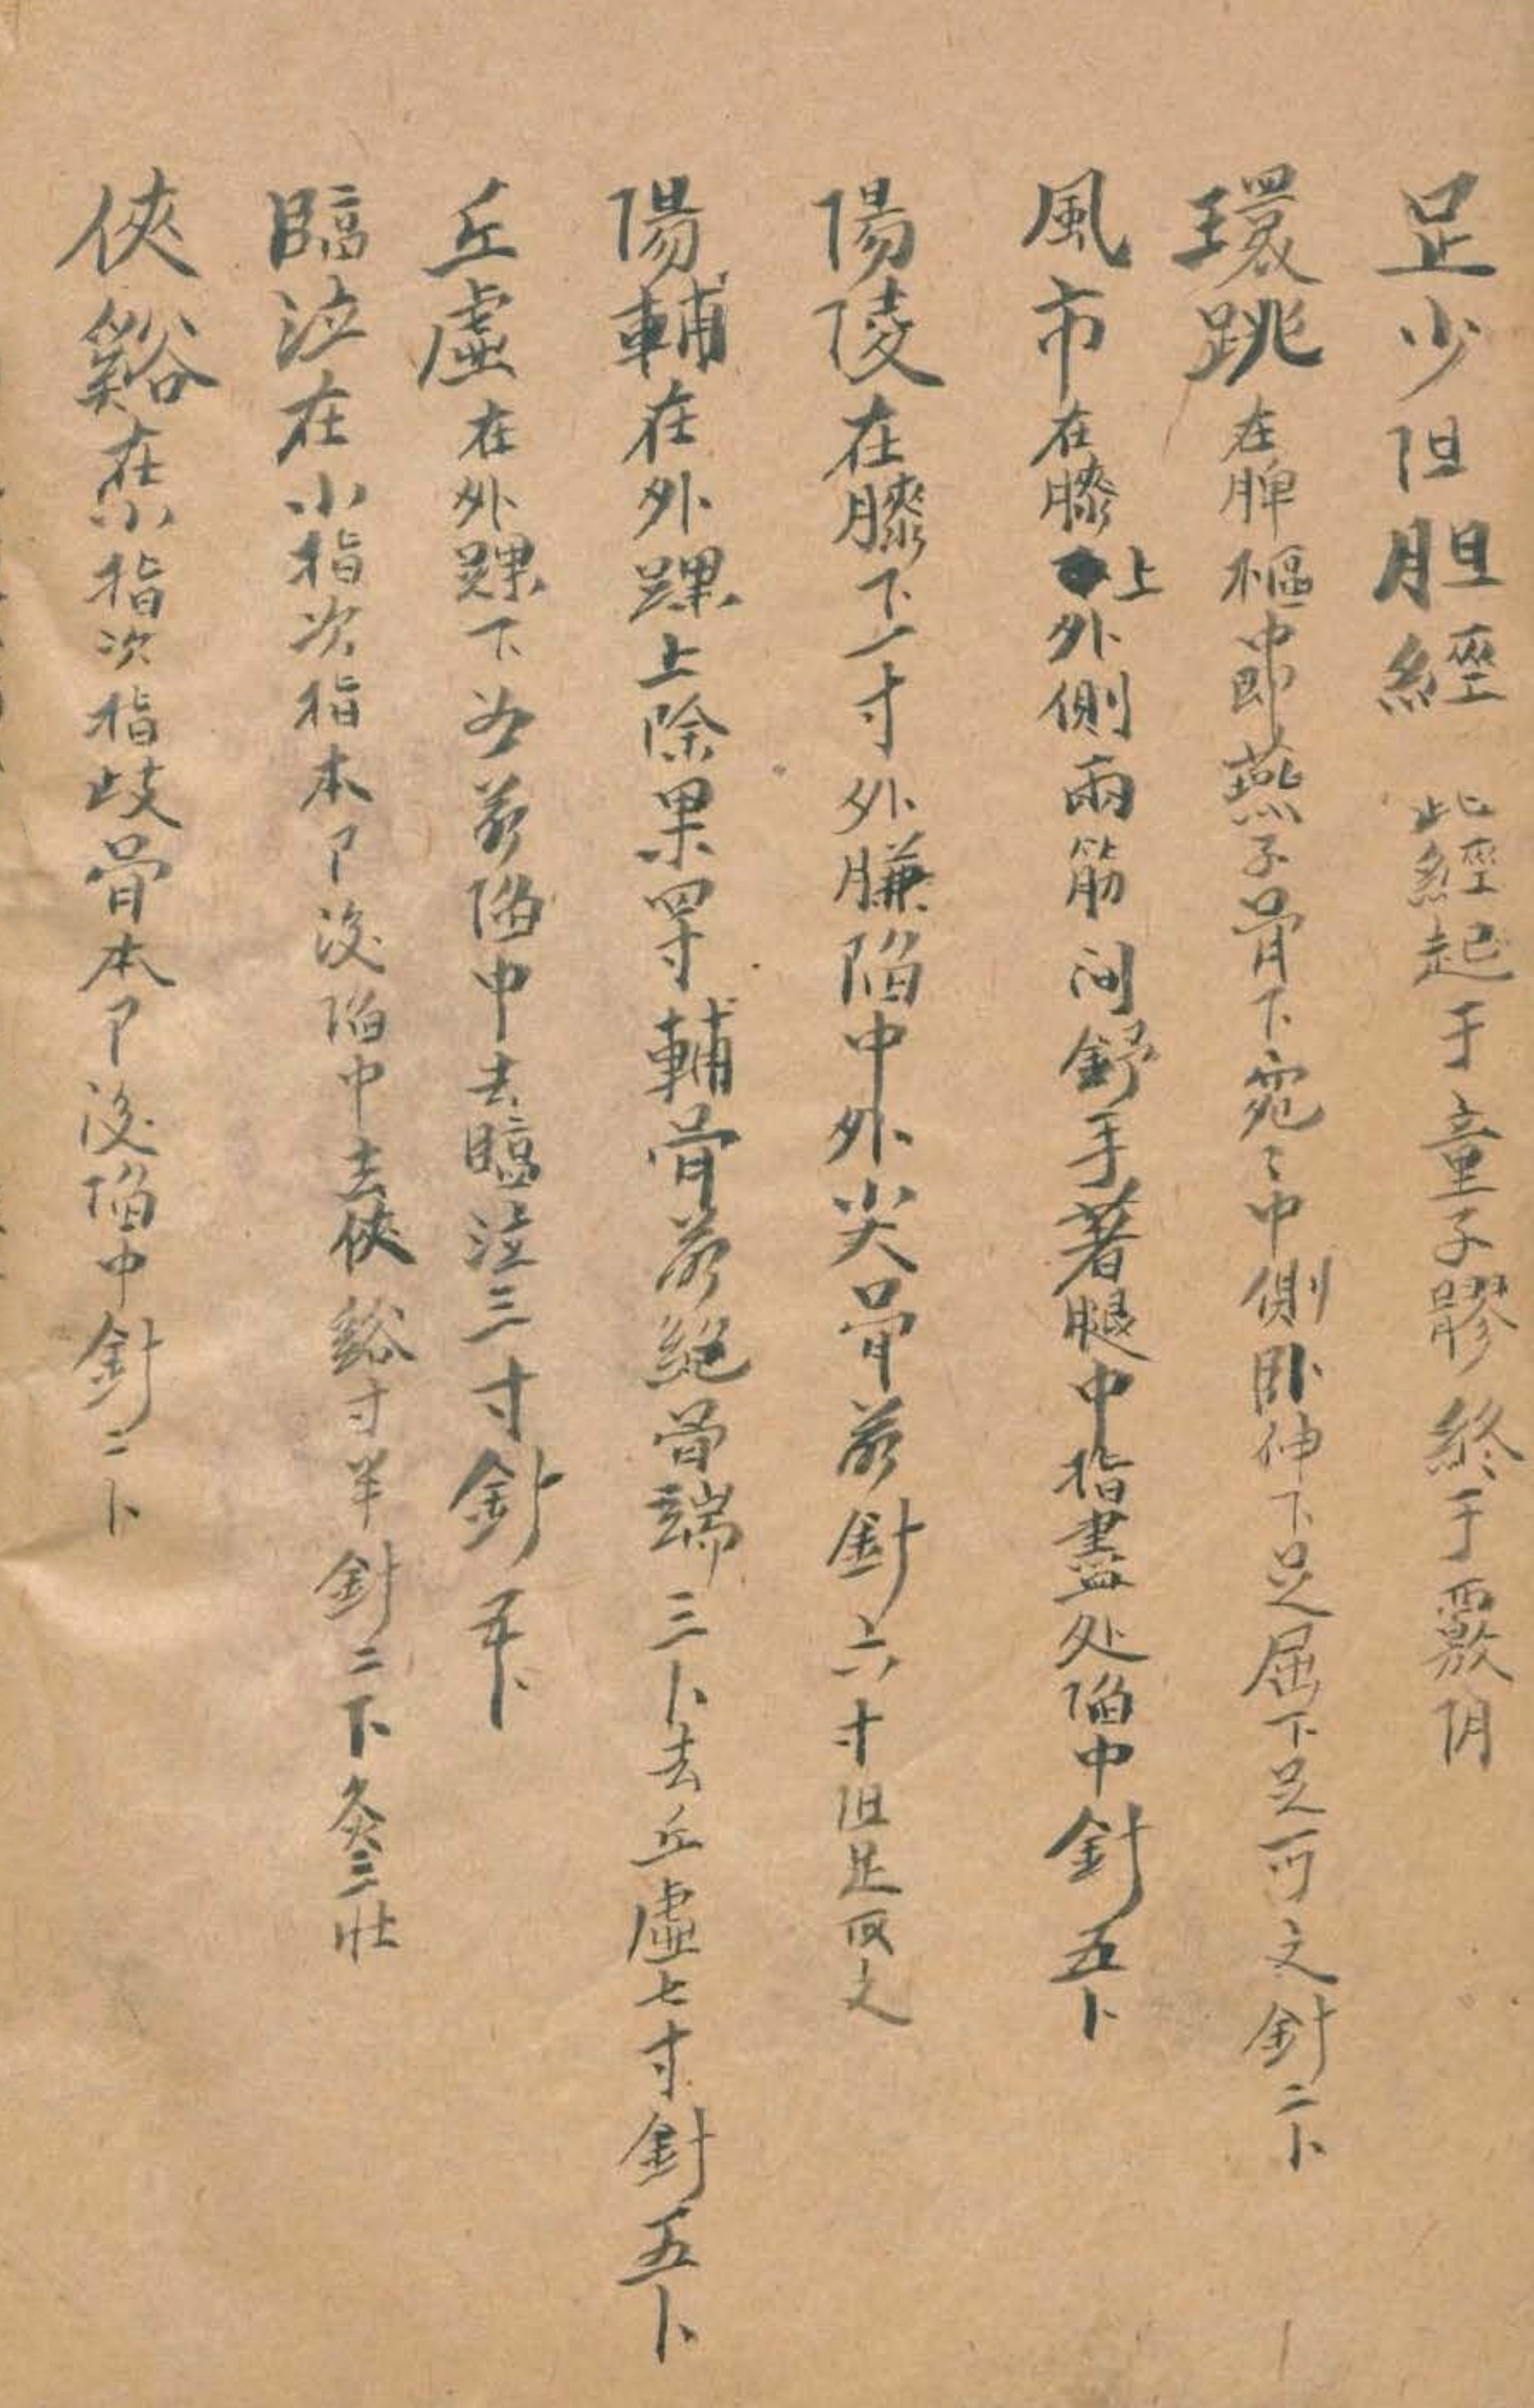 足少阳胆經 此經起于童子髎終于竅阴
環跳在脾樞中即燕子骨下宛々中側卧伸下足屈下足可文針二卜
風市在膝上外側兩筋间舒手著腿中指盡处陷中針五卜
陽陵在膝下一寸外膁陷中外尖骨前針六寸但足取文
陽輔在外踝上除果四寸輔骨前絕骨端三卜去丘虛七寸針五卜
丘虛在外踝下如前陷中去臨泣三寸針五卜
臨泣在小指次指本卩後陷中去俠谿寸半針二下灸三壯
俠谿在小指次指歧骨本卩後陷中針二卜